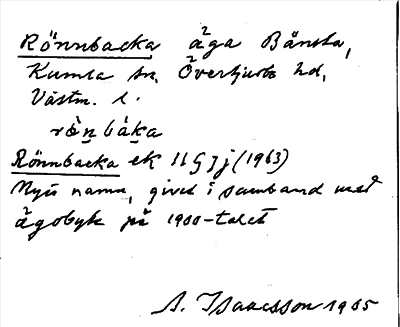 Rönnbacka äga Bänsta,
Kumla sn, Övertjurbo hd,
Västm. l.
rö̀n̠bák̠a
Rönnbacka ek 11G7j (1963)
Nyis namn, givet i samband med
ägobyte på 1900-talet
A. Isaacsson 1965